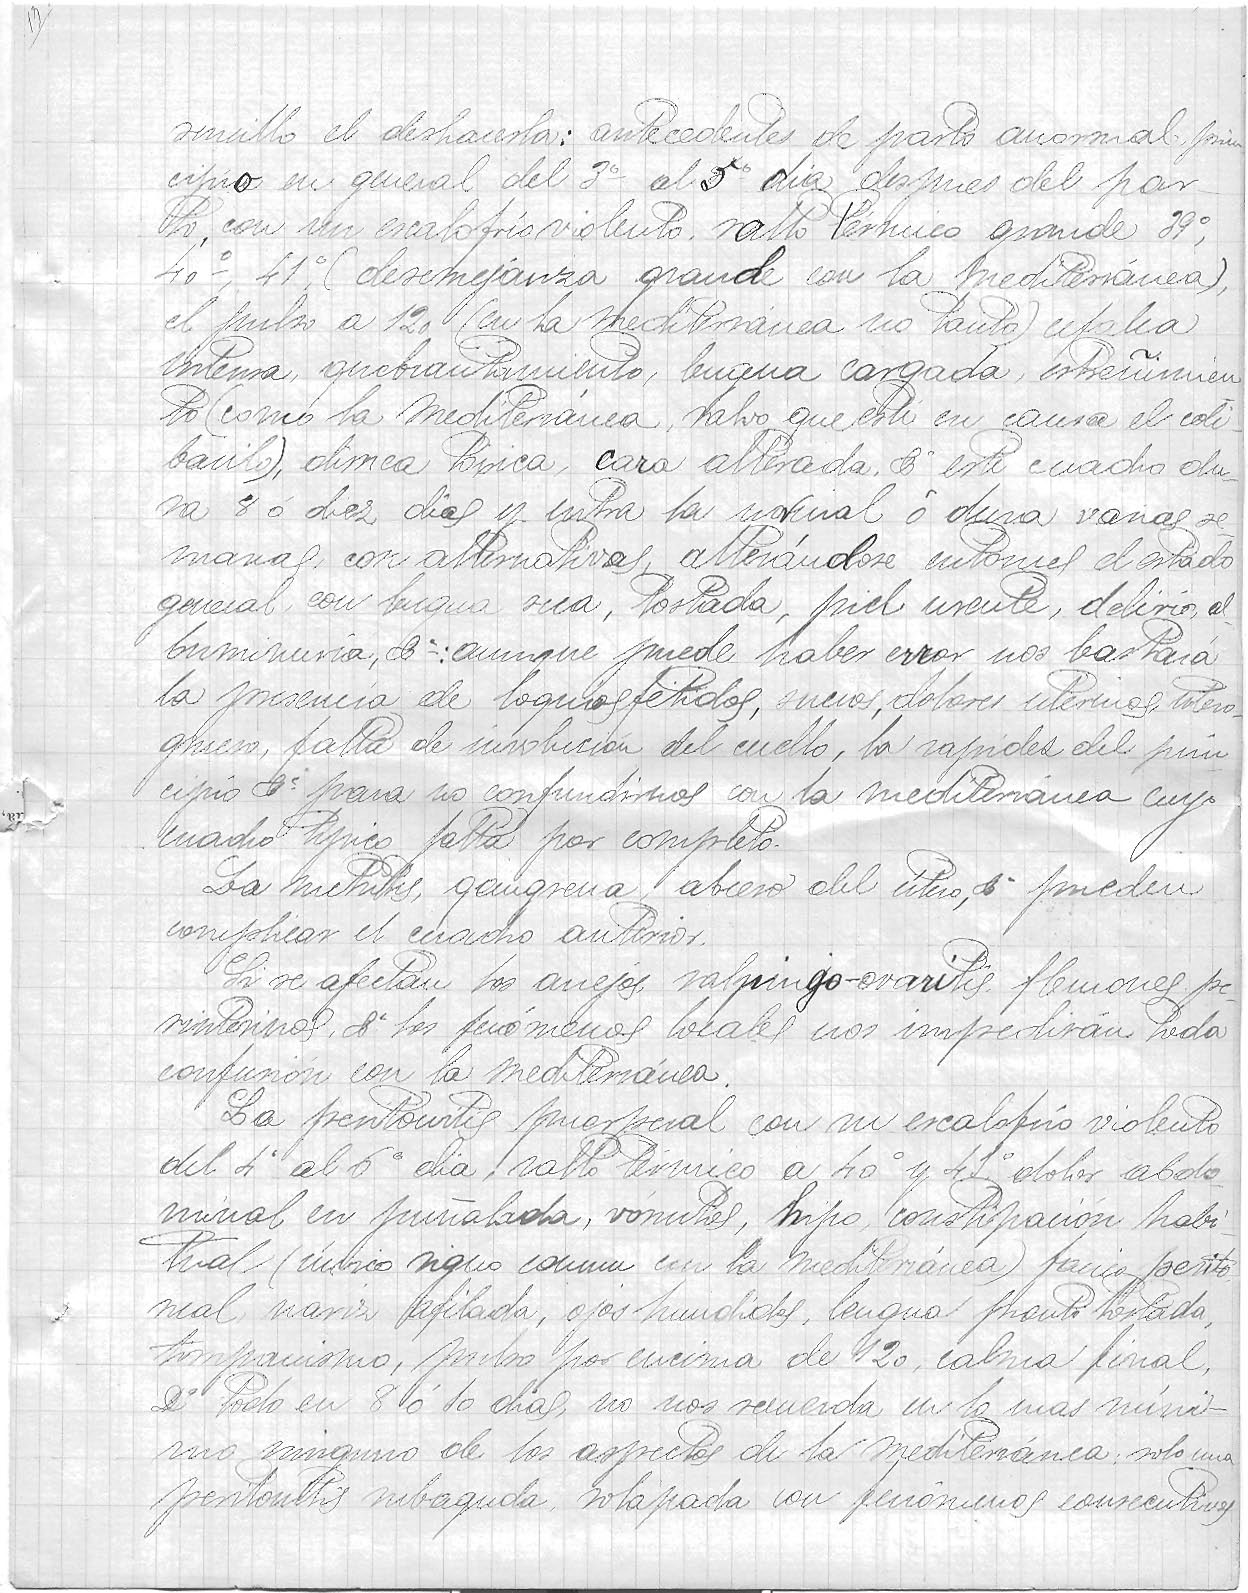 sencillo el deshacerla: antecedentes de parto anormal, prin
cipio en general del 3º al 5º dia despues del par-
to, con un escalofrío violento, salto térmico grande 39º,
40º, 41º (desemejanza grande con la mediterránea),
el pulso a 120 (en la mediterránea no tanto) cefalea
intensa, quebrantamiento, lengua cargada, estreñimien
to (como la mediterránea, salvo que esté en causa el coli-
bacilo), disnea tóxica, cara alterada, &ª este cuadro du-
ra 8 ó diez dias y entra la normal ó dura varias se-
manas, con alternativas, alterándose entonces el estado
general, con lengua seca, tostada, piel urente, delirio, al-
buminuria, &ª: aunque puede haber error nos bastará
la presencia de loquios fétidos, sucios, dolores uterinos, útero
grueso, falta de involución del cuello, la rapidez del prin-
cipio &ª para no confundirnos con la mediterránea cuyo
cuadro típico falta por completo.
La metritis, gangrena, absceso del útero, &ª pueden
complicar el cuadro anterior.
Si se afectan los anejos, salpingo-ovaritis, flemones pe-
riuterinos, &ª los fenómenos locales nos impedirán toda
confusión con la mediterránea.
La peritonitis puerperal con su escalofrío violento
del 4º al 6º dia, salto térmico a 40º y 41º dolor abdo-
minal en puñalada, vómitos, hipo, constipación habi-
tual (único signo comun con la mediterránea) facies perito
neal, nariz afilada, ojos hundidos, lengua pronto tostada,
timpanismo, pulso por encima de 120, calma final,
&ª todo en 8 ó 10 dias, no nos recuerda en lo mas míni-
mo ninguno de los aspectos de la mediterránea; solo una
peritonitis subaguda, solapada con fenómenos consecutivos